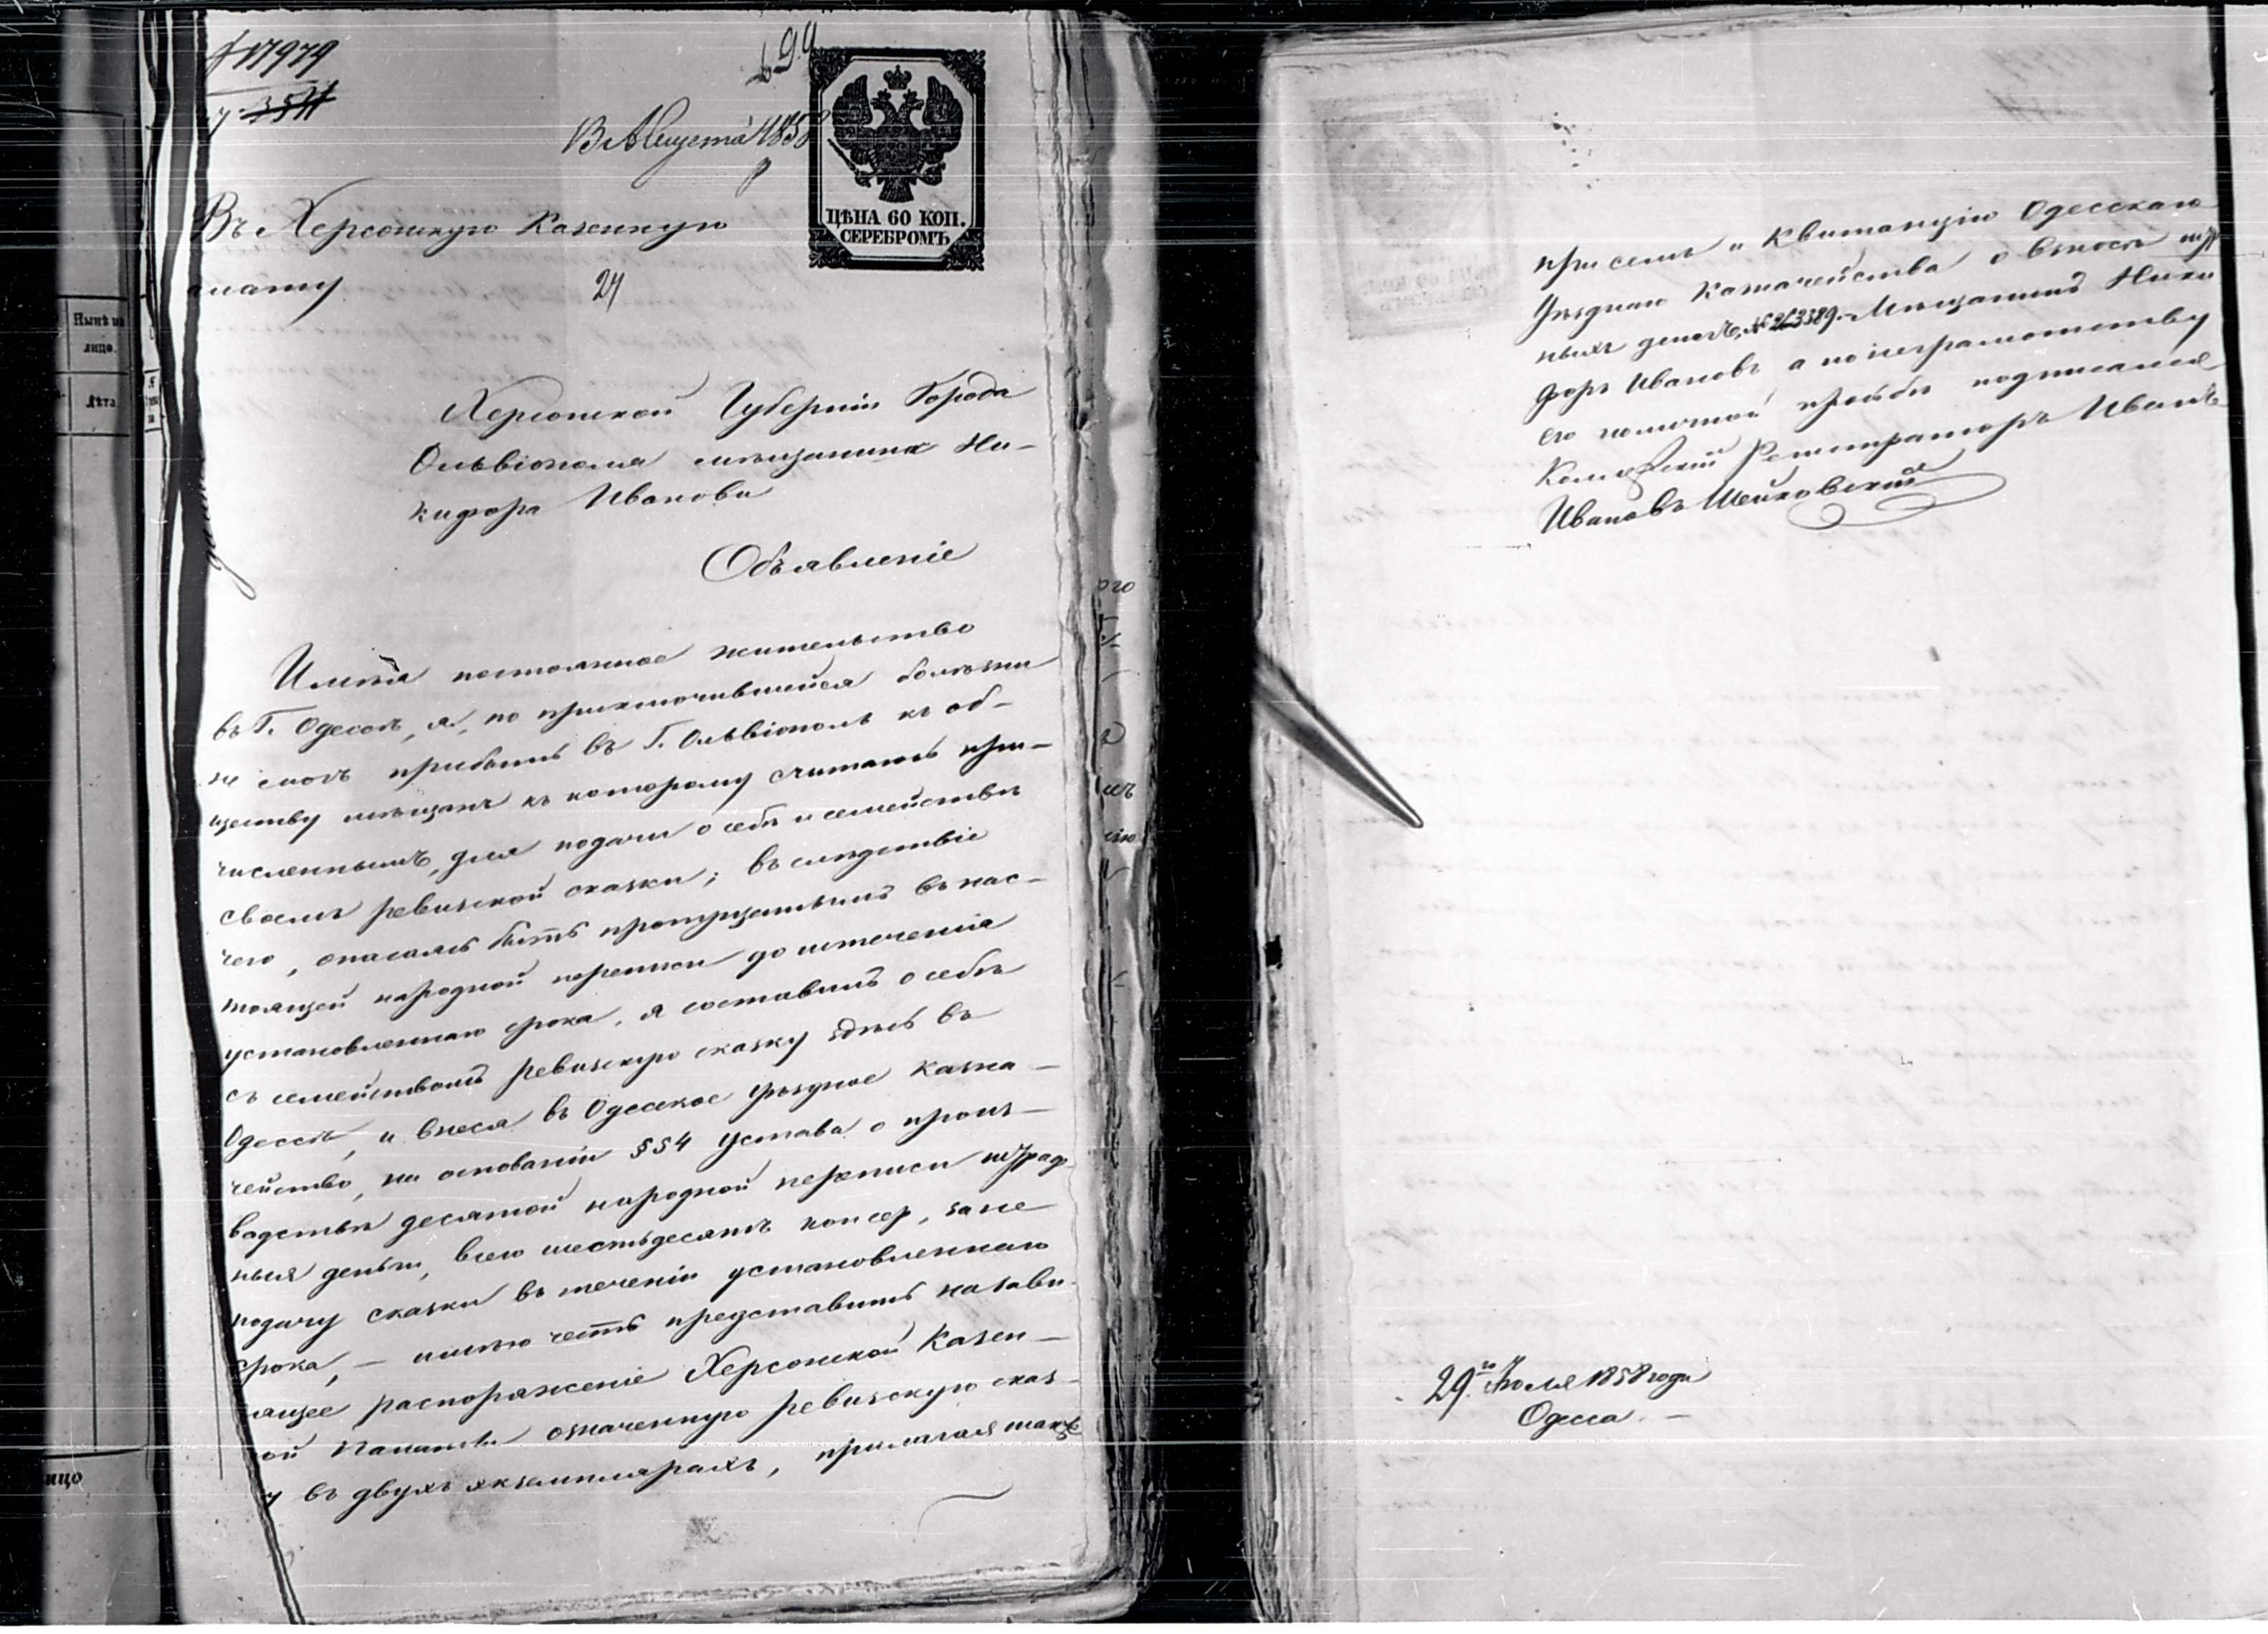 17979
699
13 Августа 1858
ЦѢНА 60 КОП.
СЕРЕБРОМЪ
Въ Херсонскую Казенную
палату
24
Херсонской Губерніи Города
Ольвіополя мѣщанина Ни-
кифора Иванова
Объявленіе
Имѣя постоянное жительство
въ Г. Одессѣ, я, по приключившейся болѣзни
не смогъ прибыть въ Г. Ольвіополь къ об-
ществу мѣщанъ къ которому считаюсь при-
численнымъ, для подачи о себѣ и семействѣ
своемъ ревизской сказки; въ слѣдствіе
чего, опасаясь быть пропущеннымъ въ нас-
тоящей народной переписи до истеченія
установленнаго срока, я составилъ о себѣ
съ семействомъ ревизскую сказку здѣсь въ
Одессѣ, и внеся въ Одесское Уѣздное Казна-
чейство, на основаніи § 54 Устава о произ-
водствѣ десятой народной переписи штраф-
ныя деньги, всего шестьдесятъ коп сер, за не
подачу сказки въ теченіи установленнаго
срока, – имѣю честь представить на зави-
сящее распоряженіе Херсонской Казен-
ой Палаты означенную ревизскую сказ-
у въ двухъ экземплярахъ, прилагая также
Нынѣ на
лицо.
Лѣта
лицо
при семъ и Квитанцію Одесскаго
Уѣзднаго Казначейства о взносѣ штр
ныхъ денегъ, № 263389. – Мѣщанинъ Ники
форъ Ивановъ а по неграмотству
его по личной прозьбѣ подписался
Колежскій Регистраторъ Иванъ
Ивановъ Шейковскій
29го Іюля 1858 года
Одесса. –